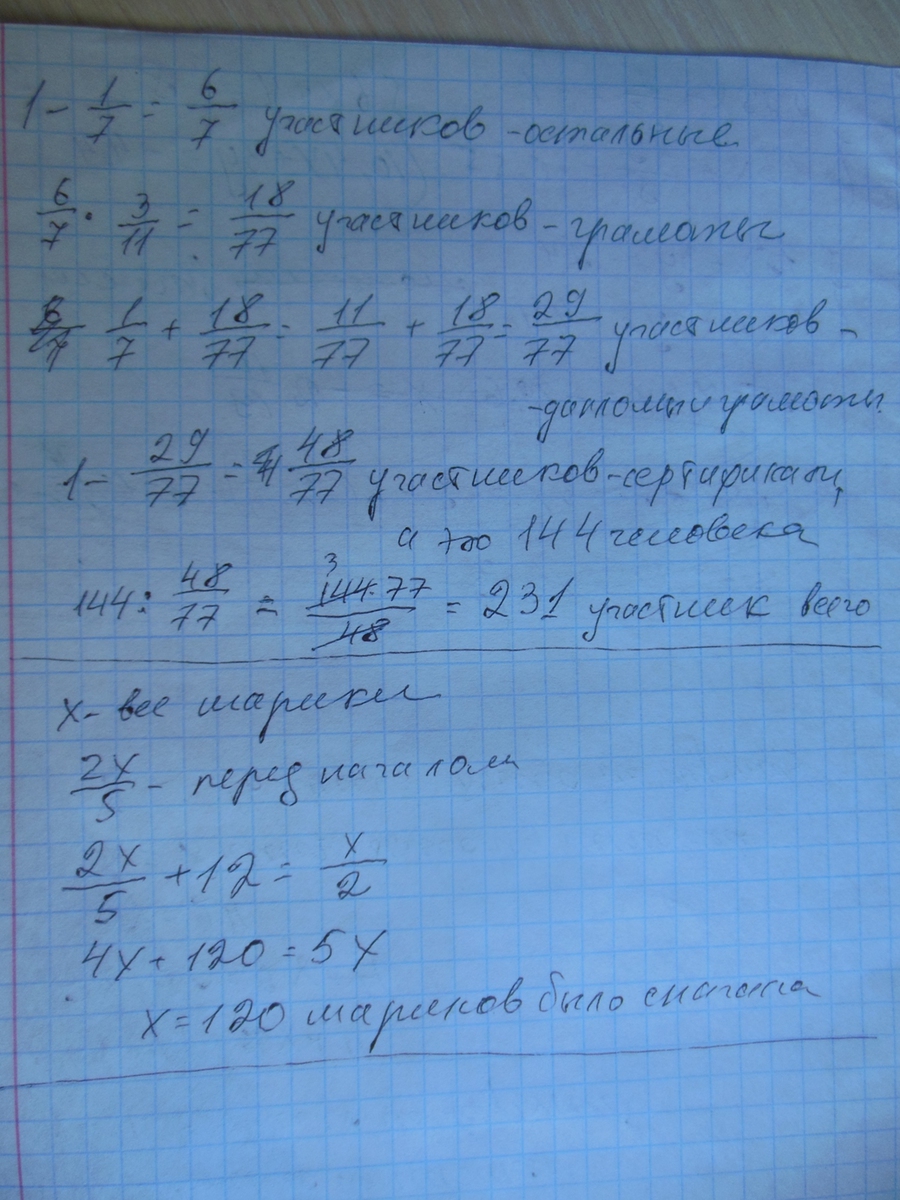 1 - 1/7 = 6/7 участников - остальные
6/7 · 3/11 = 18/77 участников - грамоты
1/7 + 18/77 = 11/77 + 18/77 = 29/77 участников -
- дипломы и грамоты
1 - 29/77 = 48/77 участников - сертификаты,
а это 144 человека
144 : 48/77 = 144·77/48 = 231 участник всего
3
x - все шарики
2x/5 - перед началом
2x/5 + 12 = x/2
4x + 120 = 5x
x = 120 шариков было сначала